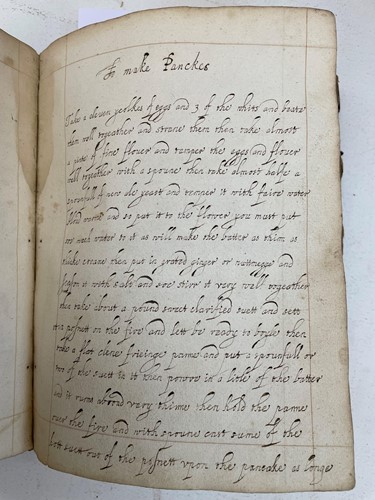 To make Panckes
Take a eleven yeolkes of eggs and 3 of the whits and beate
them well togeather and strane them then take almost
a pinte of fine flower and temper the eggs and flower
well togeather with a spoune then take almost halfe a
spounfull of new ale yeast and temper it with faire water
blod warme and so put it to the flower you must put
soe much water to it as will make the batter as thim as
thicke creame then put in grated ginger or nuttmegge and
season it with salt and soe stirr it very well togeather
then take about a pound sweet clarified suett and sett
it in posnett on the fire and lett be ready to boyle then
take a flat clene frieinge panne and put a spounfull or
two of the suett in it then powre in a litle of the batter
and it runn abroad very thinne then hold the panne
over the fire and with spoune cast sume of the
hott suett out of the posnett vpon the pancake as longe